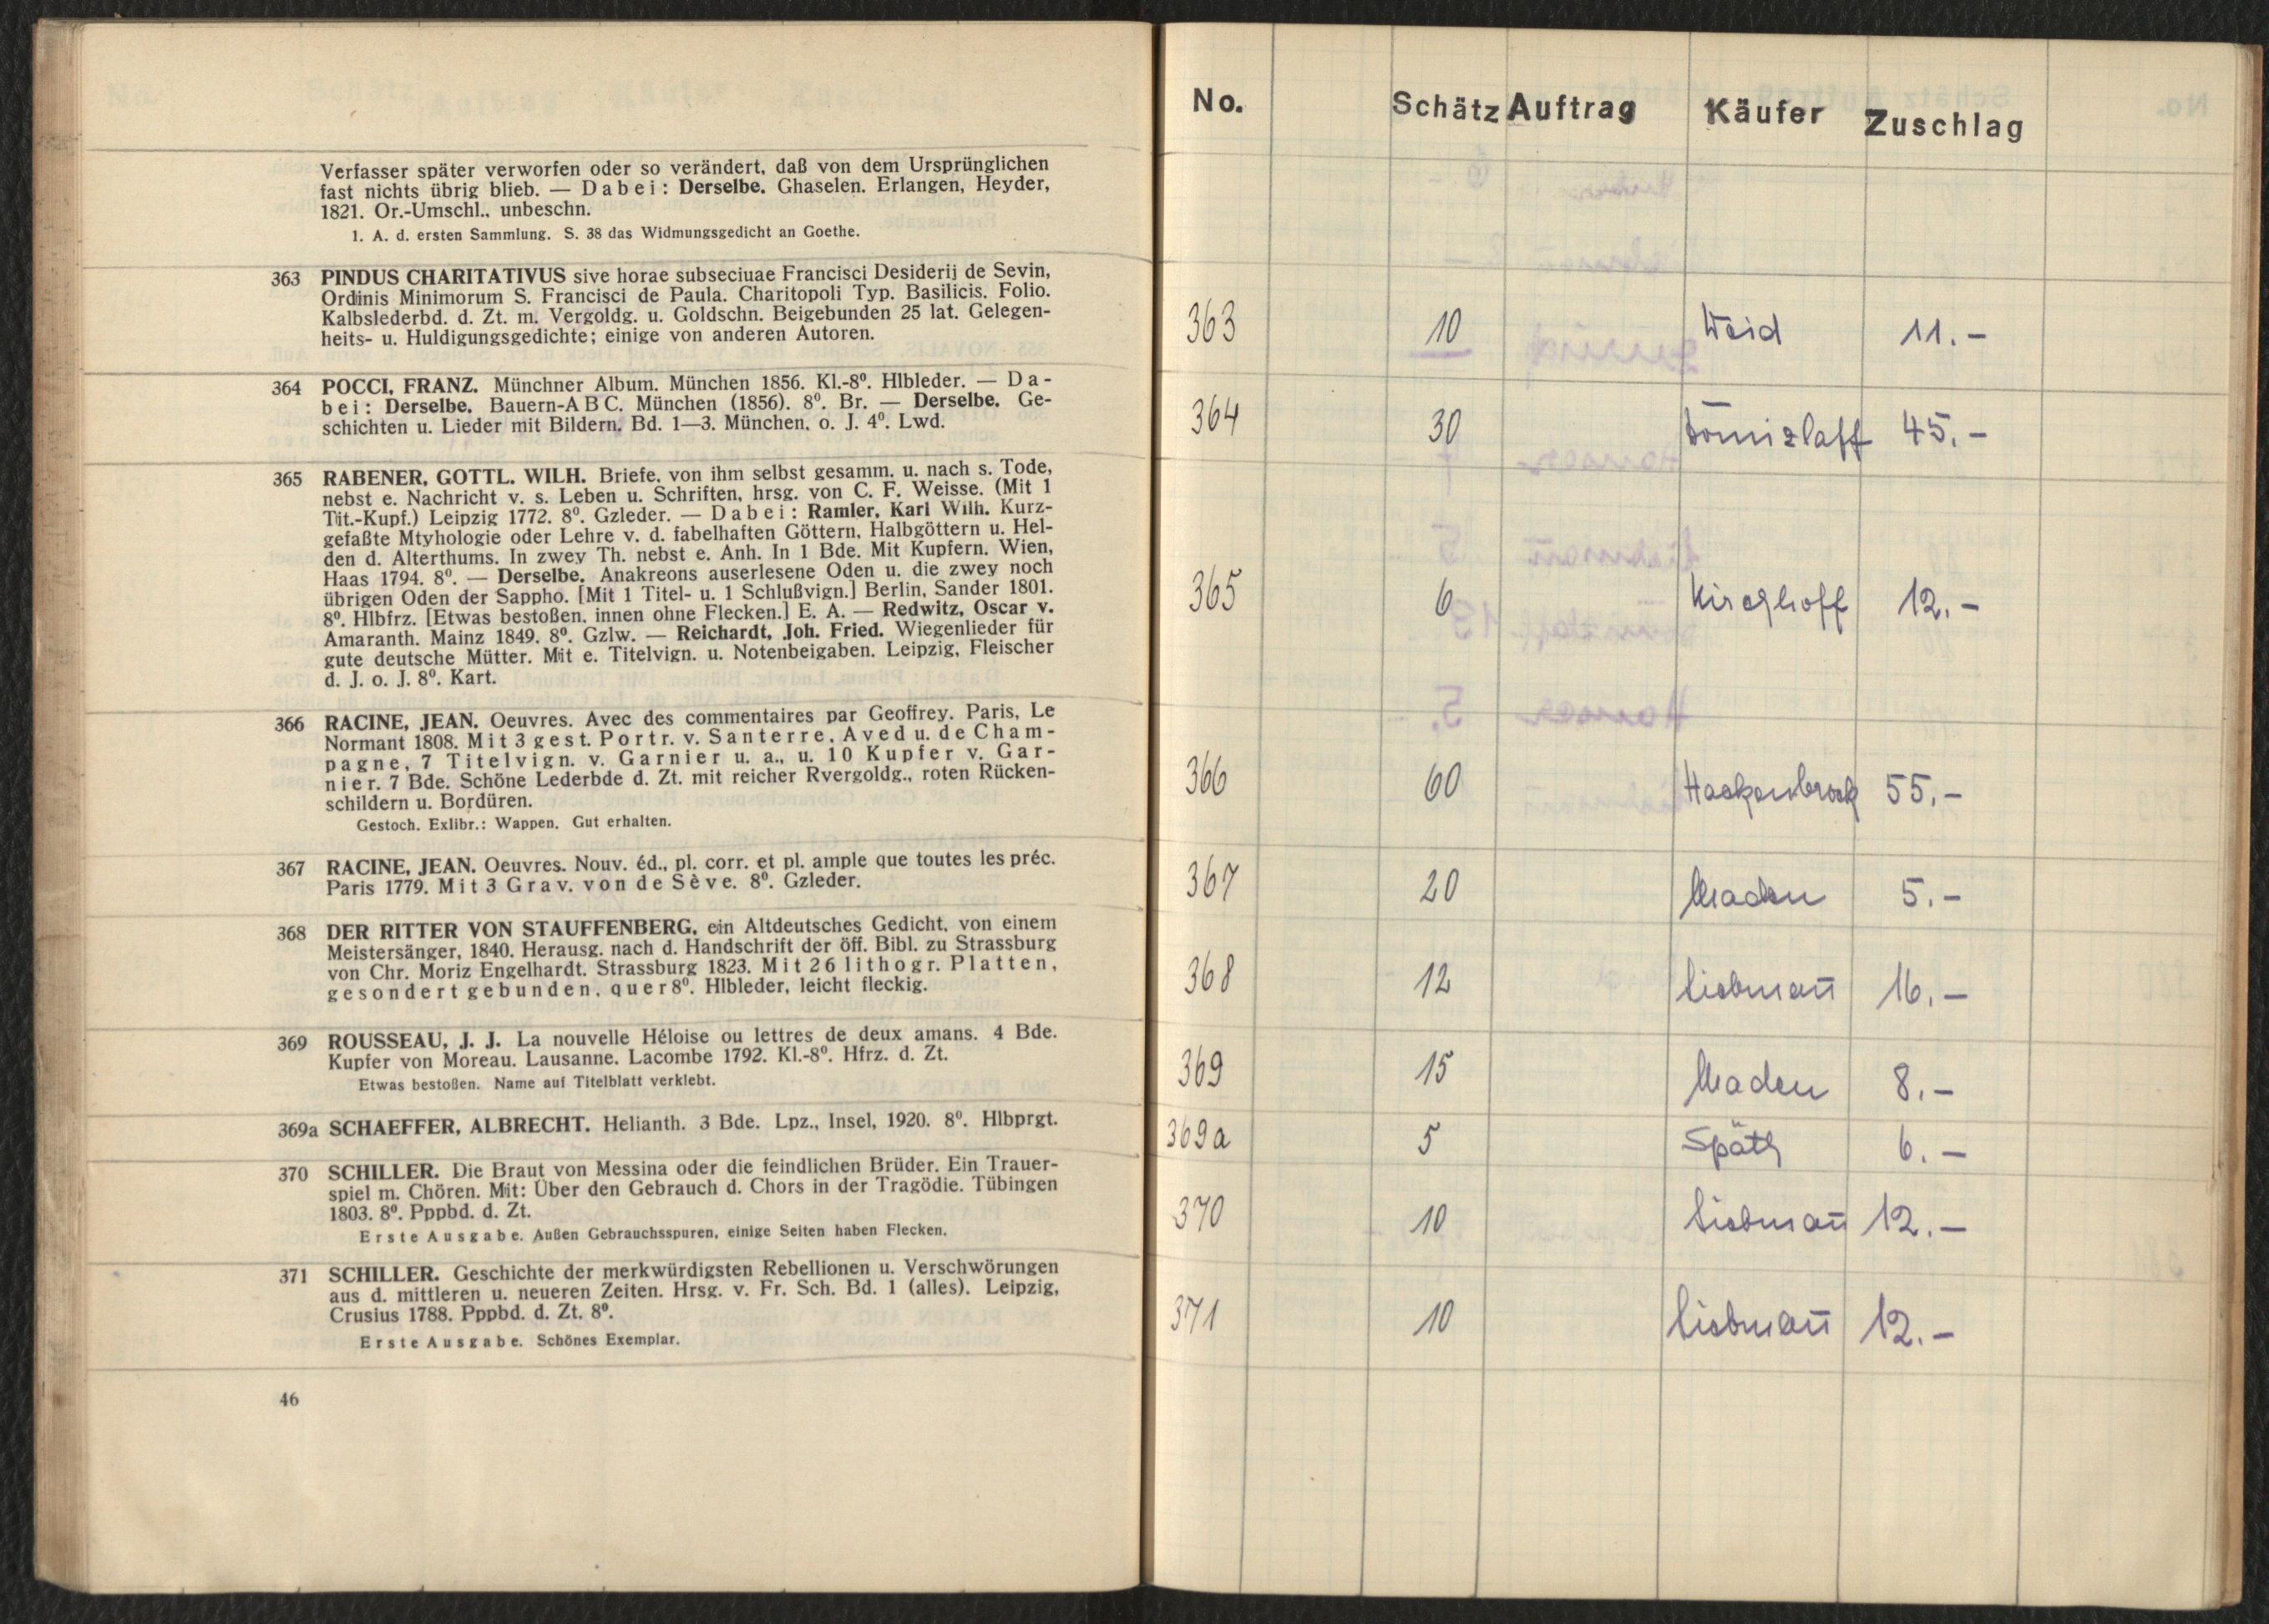 Verfasser später verworfen oder so verändert, daß von dem Ursprünglichen
fast nichts übrig blieb. — Dabei: Derselbe. Ghaselen. Erlangen, Heyder,
1821. Or.-Umschl., unbeschn.
1. A. d. ersten Sammlung. S. 38 das Widmungsgedicht an Goethe.
363 PINDUS CHARITATIVUS sive horae subseciuae Francisci Desiderij de Sevin,
Ordinis Minimorum S. Francisci de Paula. Charitopoli Typ. Basilicis. Folio.
Kalbslederbd. d. Zt. m. Vergoldg. u. Goldschn. Beigebunden 25 lat. Gelegen-
heits- u. Huldigungsgedichte; einige von anderen Autoren.
364 POCCI, FRANZ. Münchner Album. München 1856. Kl.-8⁰. Hlbleder. — Da-
bei: Derselbe. Bauern-ABC. München (1856). 8⁰. Br. — Derselbe. Ge-
schichten u. Lieder mit Bildern. Bd. 1—3. München, o. J. 4⁰. Lwd.
365 RABENER, GOTTL. WILH. Briefe, von ihm selbst gesamm. u. nach s. Tode,
nebst e. Nachricht v. s. Leben u. Schriften, hrsg. von C. F. Weisse. (Mit 1
Tit.-Kupf.) Leipzig 1772. 8⁰. Gzleder. — Dabei: Ramler, Karl Wilh. Kurz-
gefaßte Mtyhologie oder Lehre v. d. fabelhaften Göttern, Halbgöttern u. Hel-
den d. Alterthums. In zwey Th. nebst e. Anh. In 1 Bde. Mit Kupfern. Wien,
Haas 1794. 8⁰. — Derselbe. Anakreons auserlesene Oden u. die zwey noch
übrigen Oden der Sappho. [Mit 1 Titel- u. 1 Schlußvign.] Berlin, Sander 1801.
8⁰. Hlbfrz. [Etwas bestoßen, innen ohne Flecken.] E. A. — Redwitz, Oscar v.
Amaranth. Mainz 1849. 8⁰. Gzlw. — Reichardt, Joh. Fried. Wiegenlieder für
gute deutsche Mütter. Mit e. Titelvign. u. Notenbeigaben. Leipzig, Fleischer
d. J. o. J. 8⁰. Kart.
366 RACINE, JEAN. Oeuvres. Avec des commentaires par Geoffrey. Paris, Le
Normant 1808. Mit 3 gest. Portr. v. Santerre, Aved u. de Cham-
pagne, 7 Titelvign. v. Garnier u. a., u. 10 Kupfer v. Gar-
nier. 7 Bde. Schöne Lederbde d. Zt. mit reicher Rvergoldg., roten Rücken-
schildern u. Bordüren.
Gestoch. Exlibr.: Wappen. Gut erhalten.
367 RACINE, JEAN. Oeuvres. Nouv. éd., pl. corr. et pl. ample que toutes les préc.
Paris 1779. Mit 3 Grav. von de Sève. 8⁰. Gzleder.
368 DER RITTER VON STAUFFENBERG, ein Altdeutsches Gedicht, von einem
Meistersänger, 1840. Herausg. nach d. Handschrift der öff. Bibl. zu Strassburg
von Chr. Moriz Engelhardt. Strassburg 1823. Mit 26 lithogr. Platten,
gesondert gebunden, quer 8⁰. Hlbleder, leicht fleckig.
369 ROUSSEAU, J. J. La nouvelle Héloise ou lettres de deux amans. 4 Bde.
Kupfer von Moreau. Lausanne. Lacombe 1792. Kl.-8⁰. Hfrz. d. Zt.
Etwas bestoßen. Name auf Titelblatt verklebt.
369a SCHAEFFER, ALBRECHT. Helianth. 3 Bde. Lpz., Insel, 1920. 8⁰. Hlbprgt.
370 SCHILLER. Die Braut von Messina oder die feindlichen Brüder. Ein Trauer-
spiel m. Chören. Mit: Über den Gebrauch d. Chors in der Tragödie. Tübingen
1803. 8⁰. Pppbd. d. Zt.
Erste Ausgabe. Außen Gebrauchsspuren, einige Seiten haben Flecken.
371 SCHILLER. Geschichte der merkwürdigsten Rebellionen u. Verschwörungen
aus d. mittleren u. neueren Zeiten. Hrsg. v. Fr. Sch. Bd. 1 (alles). Leipzig,
Crusius 1788. Pppbd. d. Zt. 8⁰.
Erste Ausgabe. Schönes Exemplar.
46
No. Schätz Auftrag Käufer Zuschlag
363 10 Weid 11.-
364 30 Dömizlaff 45.-
365 6 Kirchhoff 12.-
366 60 Hackenbrock 55.-
367 20 Maden 5.-
368 12 Liebmañ 16.-
369 15 Maden 8.-
369a 5 Späth 6.-
370 10 Liebmañ 12.-
371 10 Liebmañ 12.-